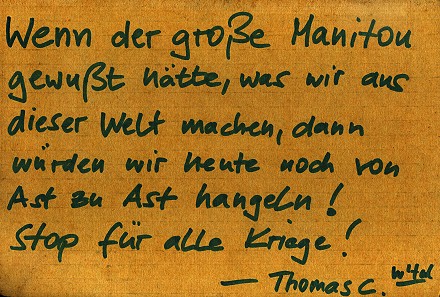 Wenn der große Manitou
gewußt hätte, was wir aus
dieser Welt machen, dann
würden wir heute noch von
Ast zu Ast hangeln!
Stop für alle Kriege!
— Thomas C.